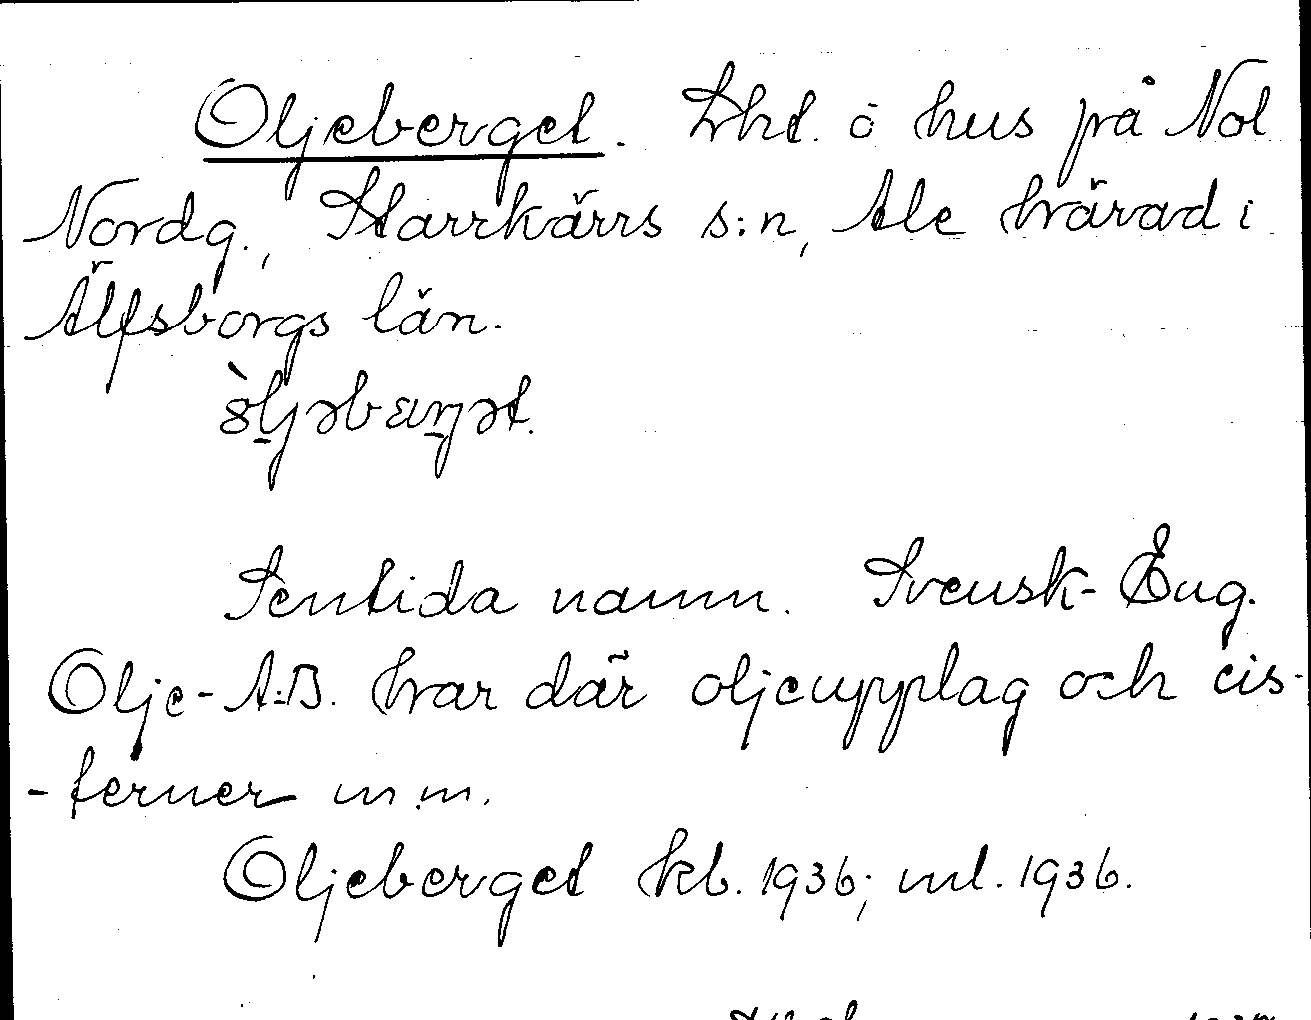 Oljeberget. Lht. o hus på Nol
Nordg., Starrkärrs s:n, Ale härad i
Älfsborgs län.
Sentida namn. Svensk-Eng.
Olje-A.B. har där oljeupplag och cis-
-terner m.m.
Oljeberget kb. 1936; ml. 1936.